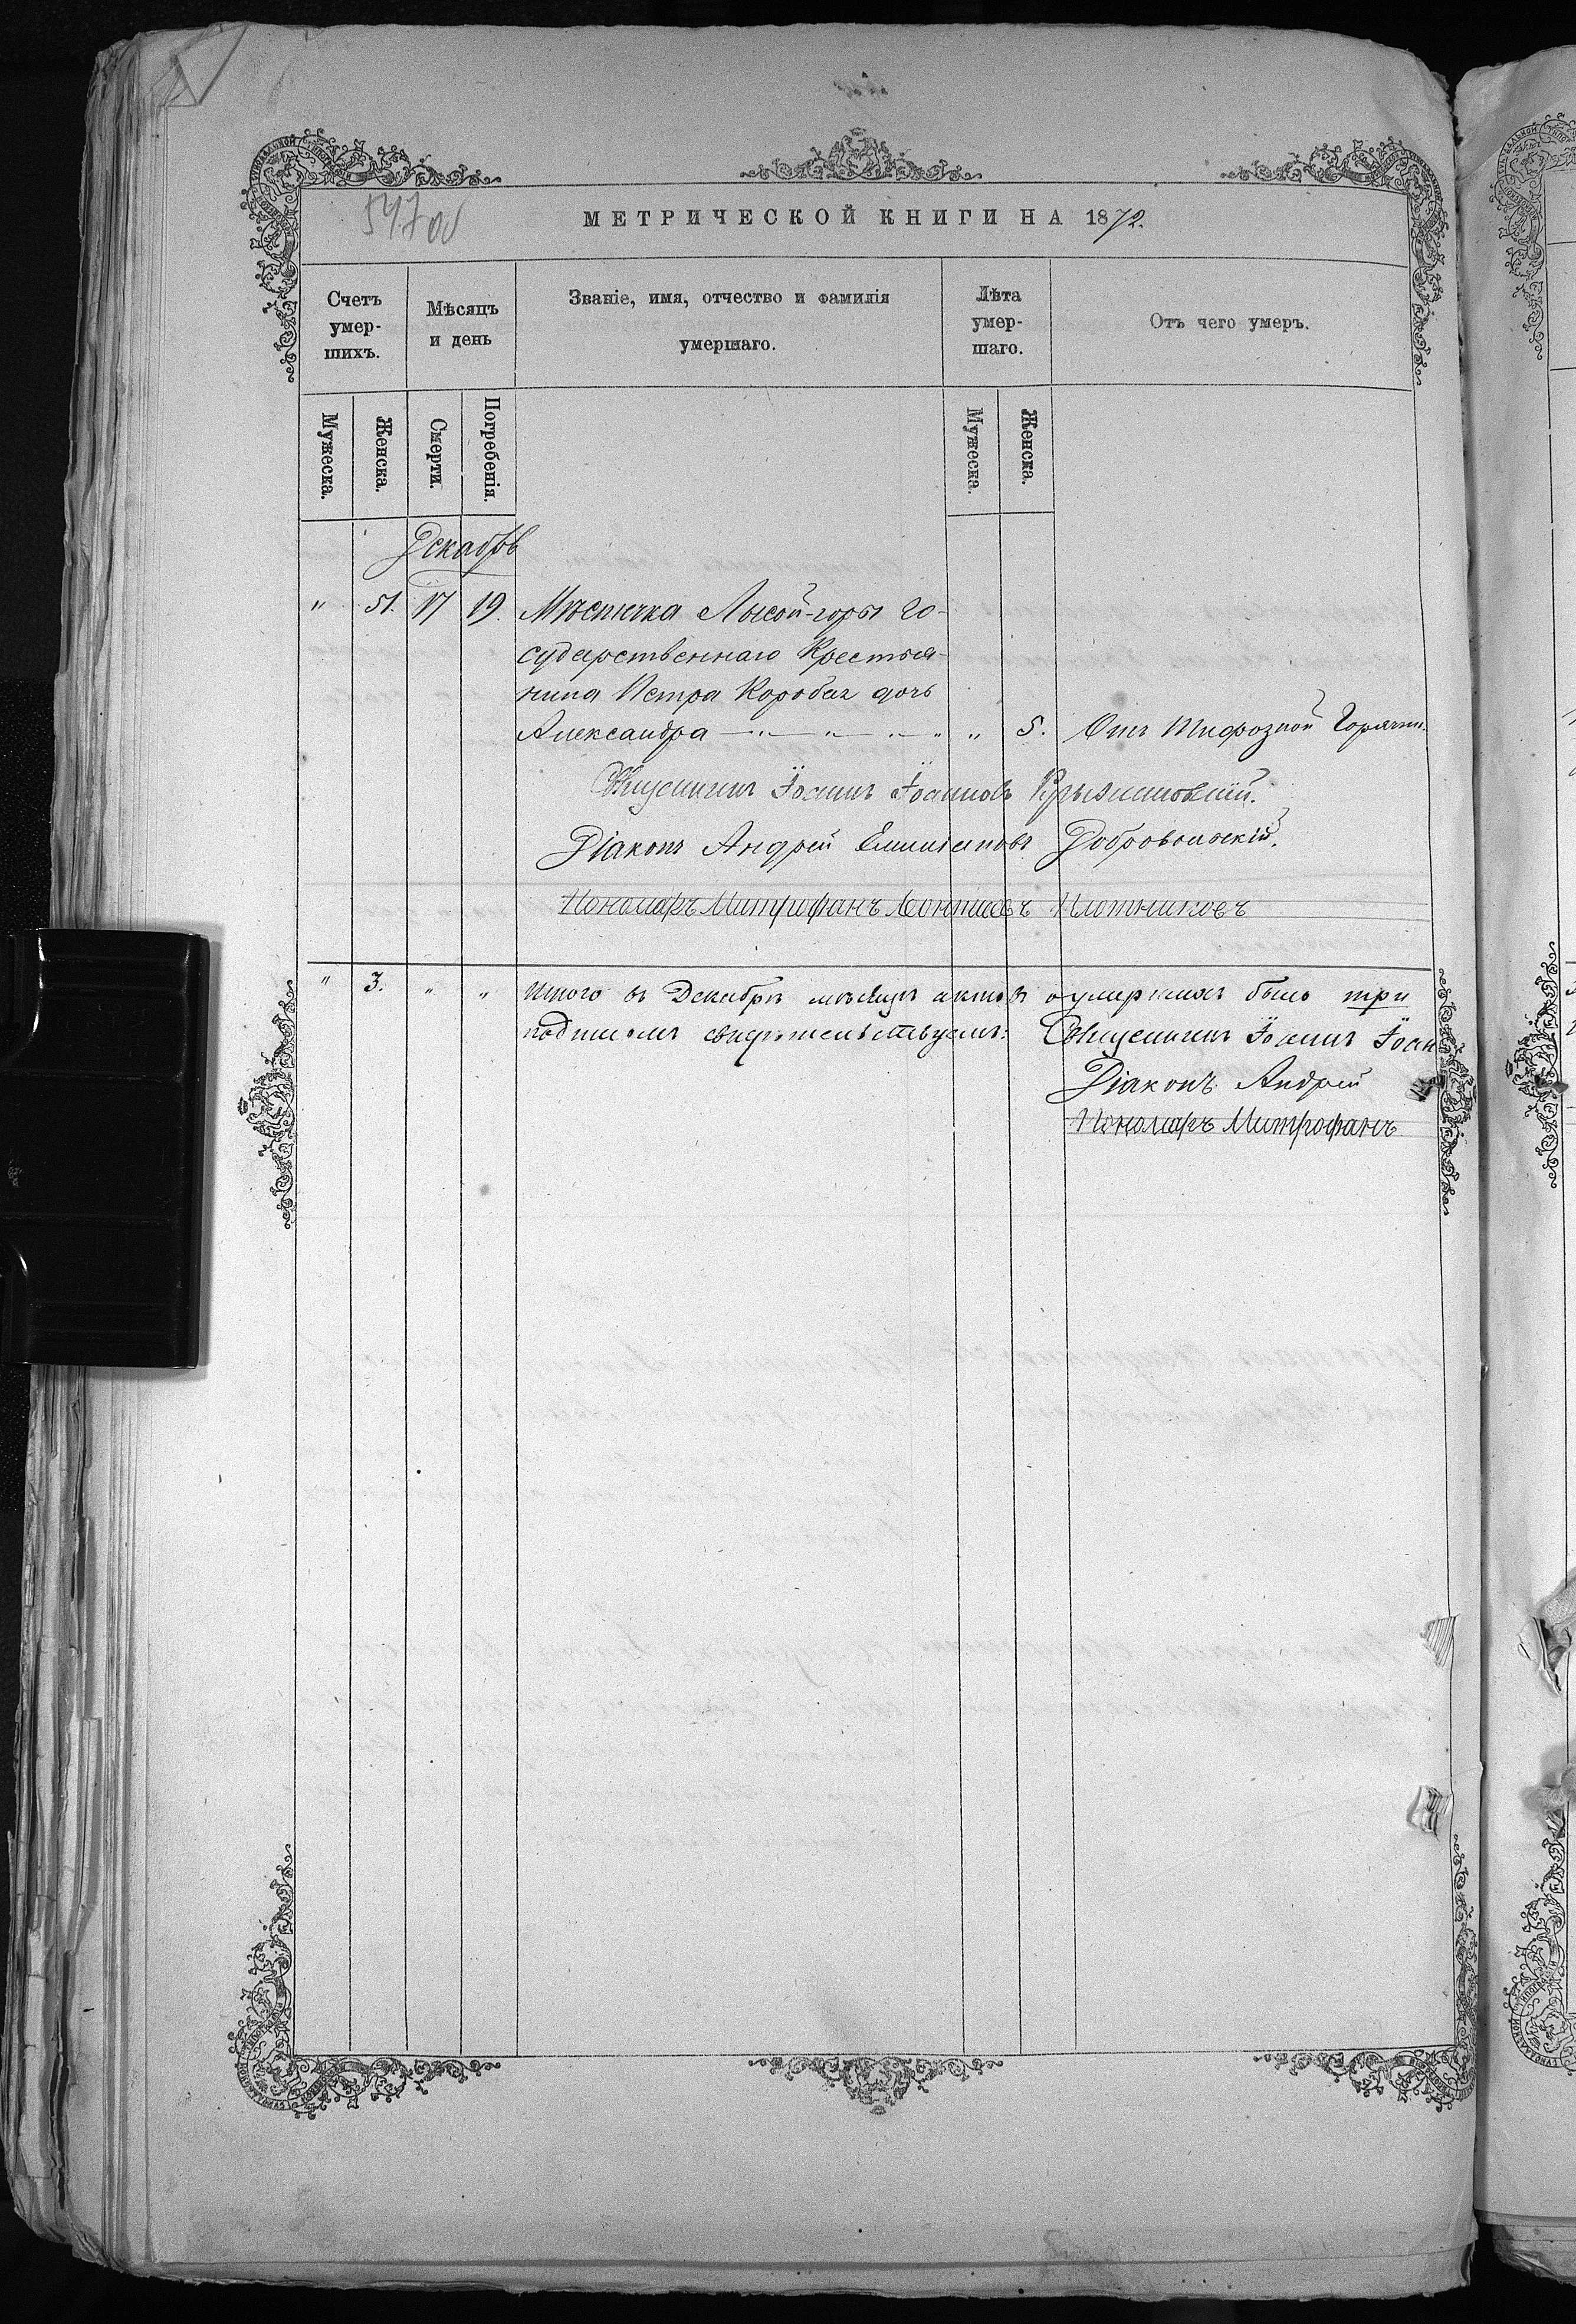 547 об
МЕТРИЧЕСКОЙ КНИГИ НА 1872.
Счетъ умер-шихъ.
Мѣсяцъ и день
Званіе, имя, отчество и фамилія умершаго.
Лѣта умер-шаго.
Отъ чего умеръ.
Мужеска.
Женска.
Смерти.
Погребенія.
Мужеска.
Женска.
Декабрь
" 51. 17 19. Мѣстечка Лысой-горы го-
сударственнаго Крестья-
нина Петра Коробка дочь
Александра " 5. Отъ Тифозной Горячки.
Священникъ Іоаннъ Іоанновъ Крыжановскій.
Діаконъ Андрей Емиліановъ Добровольскій.
Пономарь Митрофанъ Леонтіевъ Плотниковъ
" 3. " " Итого въ Декабрѣ мѣсяцѣ актовъ о умершихъ было три
подписомъ свидѣтельствуемъ: Священникъ Іоаннъ Іоан
Діаконъ Андрей
Пономарь Митрофанъ